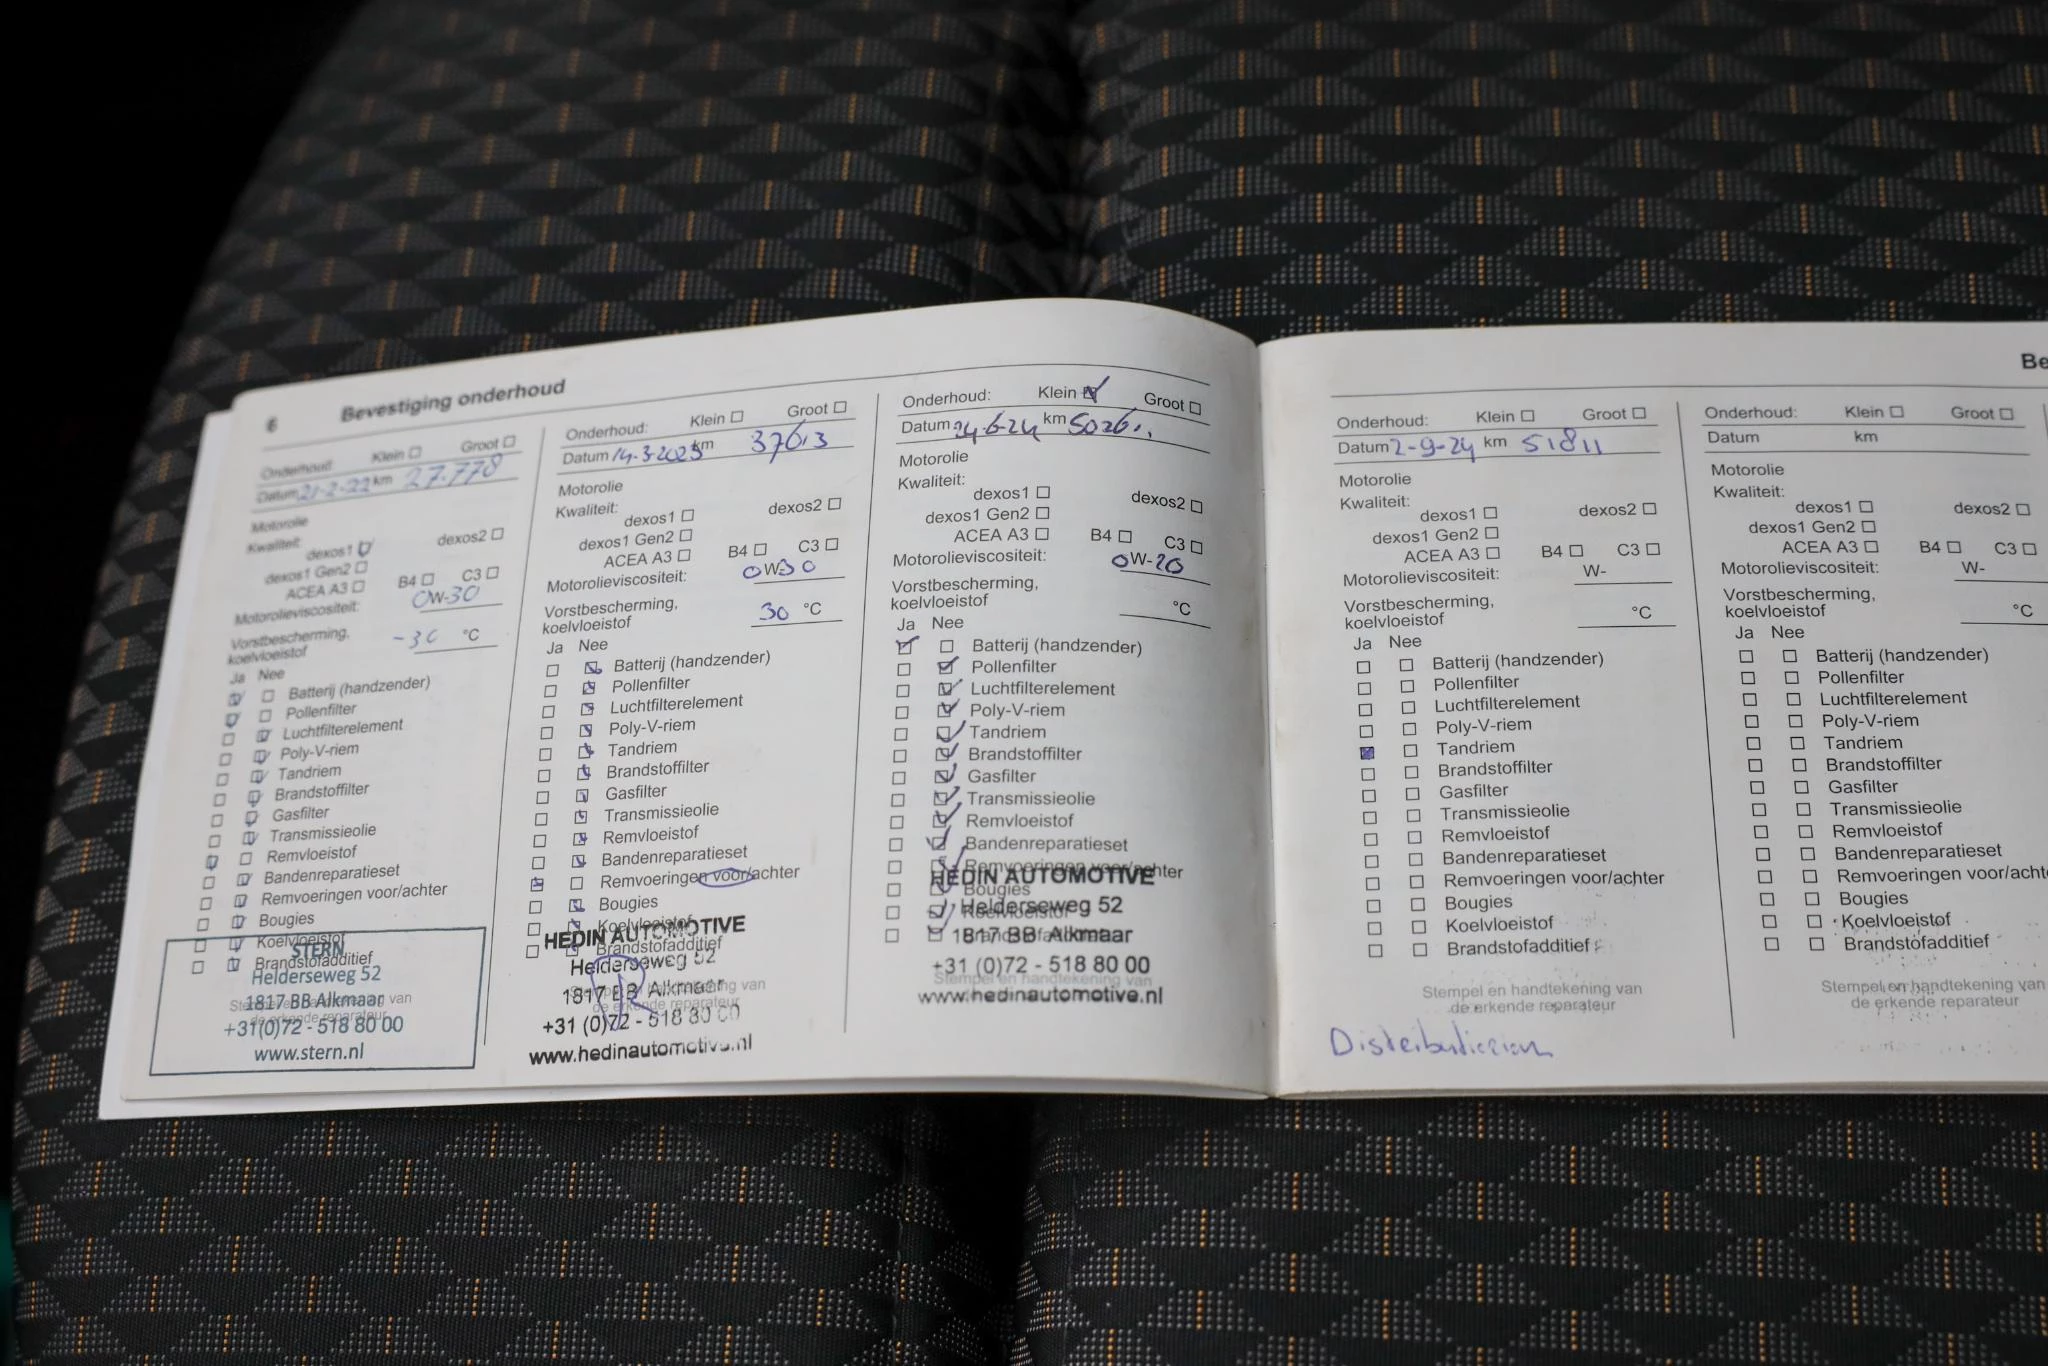 6 Bevestiging onderhoud
Onderhoud: Klein Groot
Datum 21-2-22 km 27.778
Motorolie
Kwaliteit:
dexos1 dexos2
dexos1 Gen2
ACEA A3 B4 C3
Motorolieviscositeit: 0W-30
Vorstbescherming,
koelvloeistof -30 °C
Ja Nee
Batterij (handzender)
Pollenfilter
Luchtfilterelement
Poly-V-riem
Tandriem
Brandstoffilter
Gasfilter
Transmissieolie
Remvloeistof
Bandenreparatieset
Remvoeringen voor/achter
Bougies
Koelvloeistof
Brandstofadditief
Stempel en handtekening van
de erkende reparateur
STERN
Helderseweg 52
1817 BB Alkmaar
+31(0)72 - 518 80 00
www.stern.nl
Onderhoud: Klein Groot
Datum 14-3-2023 km 37613
Motorolie
Kwaliteit:
dexos1 dexos2
dexos1 Gen2
ACEA A3 B4 C3
Motorolieviscositeit: 0W-30
Vorstbescherming,
koelvloeistof 30 °C
Ja Nee
Batterij (handzender)
Pollenfilter
Luchtfilterelement
Poly-V-riem
Tandriem
Brandstoffilter
Gasfilter
Transmissieolie
Remvloeistof
Bandenreparatieset
Remvoeringen voor/achter
Bougies
Koelvloeistof
Brandstofadditief
Stempel en handtekening van
de erkende reparateur
HEDIN AUTOMOTIVE
Helderseweg 52
1817 BB Alkmaar
+31 (0)72 - 518 80 00
www.hedinautomotive.nl
Onderhoud: Klein Groot
Datum 24-6-24 km
Motorolie
Kwaliteit:
dexos1 dexos2
dexos1 Gen2
ACEA A3 B4 C3
Motorolieviscositeit: 0W-20
Vorstbescherming,
koelvloeistof °C
Ja Nee
Batterij (handzender)
Pollenfilter
Luchtfilterelement
Poly-V-riem
Tandriem
Brandstoffilter
Gasfilter
Transmissieolie
Remvloeistof
Bandenreparatieset
Remvoeringen voor/achter
Bougies
Koelvloeistof
Brandstofadditief
Stempel en handtekening van
HEDIN AUTOMOTIVE
Helderseweg 52
1817 BB Alkmaar
+31 (0)72 - 518 80 00
www.hedinautomotive.nl
Be
Onderhoud: Klein Groot
Datum 2-9-24 km 51811
Motorolie
Kwaliteit:
dexos1 dexos2
dexos1 Gen2
ACEA A3 B4 C3
Motorolieviscositeit: W-
Vorstbescherming,
koelvloeistof °C
Ja Nee
Batterij (handzender)
Pollenfilter
Luchtfilterelement
Poly-V-riem
Tandriem
Brandstoffilter
Gasfilter
Transmissieolie
Remvloeistof
Bandenreparatieset
Remvoeringen voor/achter
Bougies
Koelvloeistof
Brandstofadditief
Stempel en handtekening van
de erkende reparateur
Distributieriem
Onderhoud: Klein Groot
Datum km
Motorolie
Kwaliteit:
dexos1 dexos2
dexos1 Gen2
ACEA A3 B4 C3
Motorolieviscositeit: W-
Vorstbescherming,
koelvloeistof °C
Ja Nee
Batterij (handzender)
Pollenfilter
Luchtfilterelement
Poly-V-riem
Tandriem
Brandstoffilter
Gasfilter
Transmissieolie
Remvloeistof
Bandenreparatieset
Remvoeringen voor/acht
Bougies
Koelvloeistof
Brandstofadditief
Stempel en handtekening van
de erkende reparateur